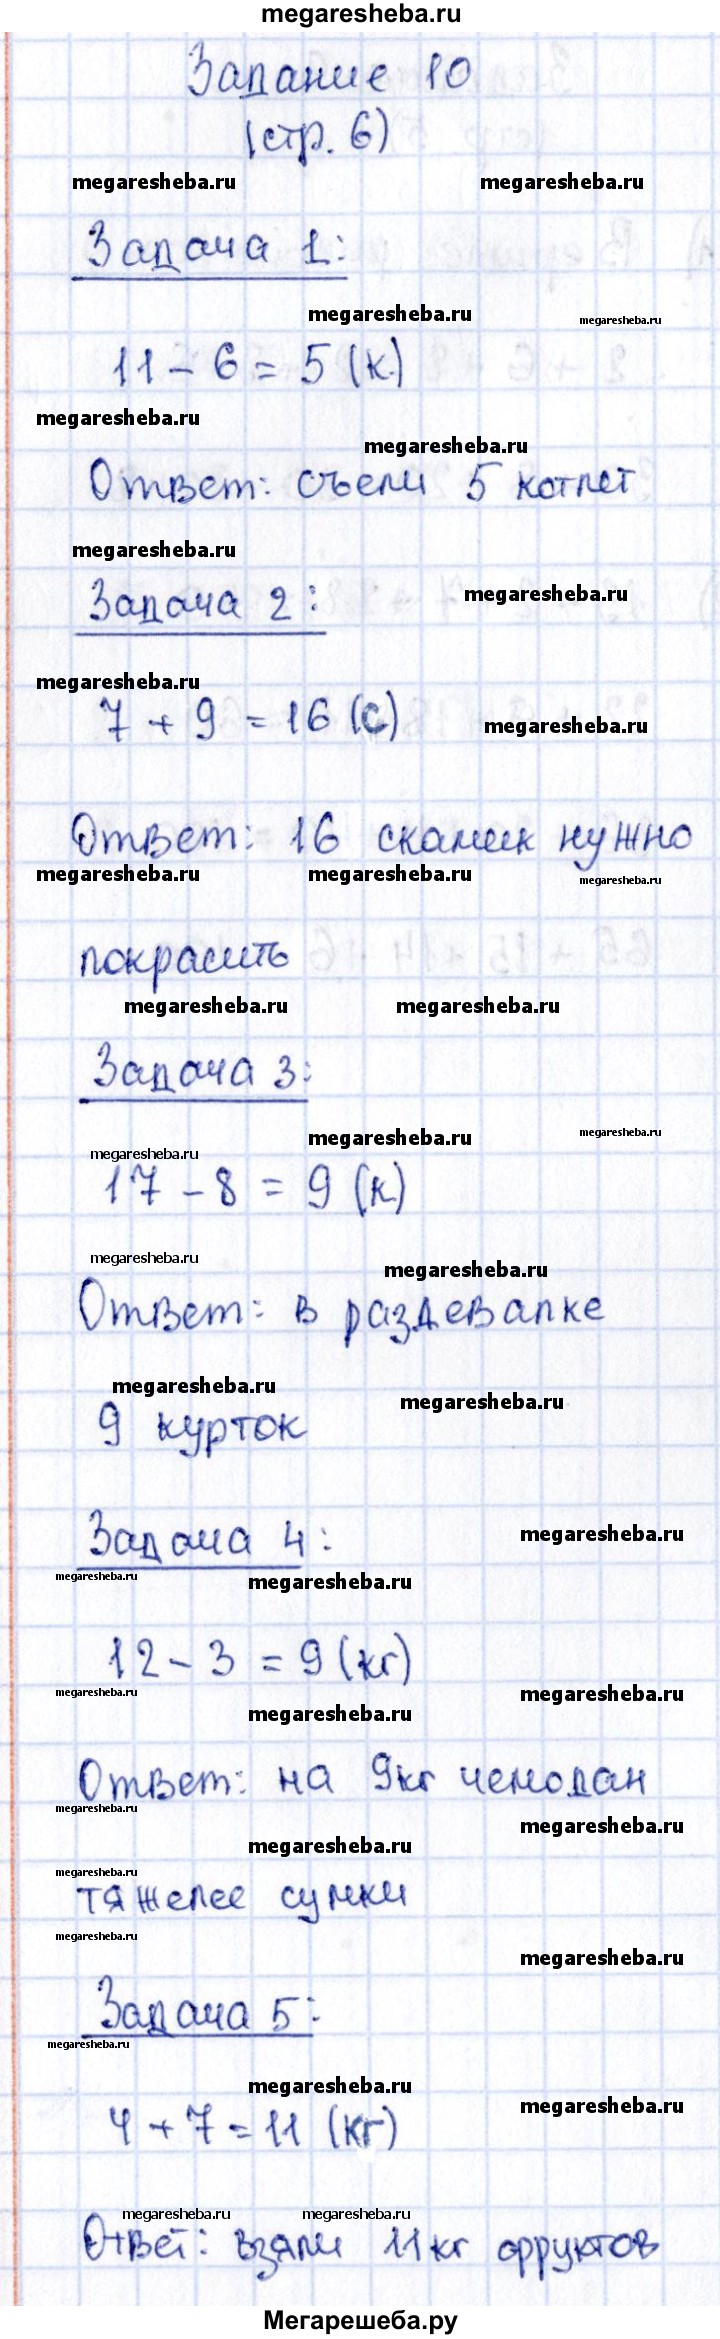 megaresheba.ru
Задание 10
(стр. 6)
megaresheba.ru megaresheba.ru
Задача 1:
megaresheba.ru megaresheba.ru
11 - 6 = 5 (к)
megaresheba.ru
megaresheba.ru
Ответ: съели 5 котлет
megaresheba.ru
megaresheba.ru
Задача 2:
megaresheba.ru
7 + 9 = 16 (с)
megaresheba.ru
Ответ: 16 скамеек нужно
megaresheba.ru megaresheba.ru megaresheba.ru
покрасить
megaresheba.ru megaresheba.ru
Задача 3:
megaresheba.ru megaresheba.ru
megaresheba.ru
17 - 8 = 9 (к)
megaresheba.ru
megaresheba.ru
Ответ: в раздевалке
megaresheba.ru
megaresheba.ru
9 курток
Задача 4:
megaresheba.ru
megaresheba.ru
megaresheba.ru
12 - 3 = 9 (кг)
megaresheba.ru
megaresheba.ru
megaresheba.ru
Ответ: на 9кг чемодан
megaresheba.ru
megaresheba.ru
megaresheba.ru
megaresheba.ru
тяжелее сумки
megaresheba.ru
megaresheba.ru
Задача 5:
megaresheba.ru
megaresheba.ru
megaresheba.ru
4 + 7 = 11 (кг)
megaresheba.ru megaresheba.ru
Ответ: взяли 11кг фруктов
Мегарешеба.ру